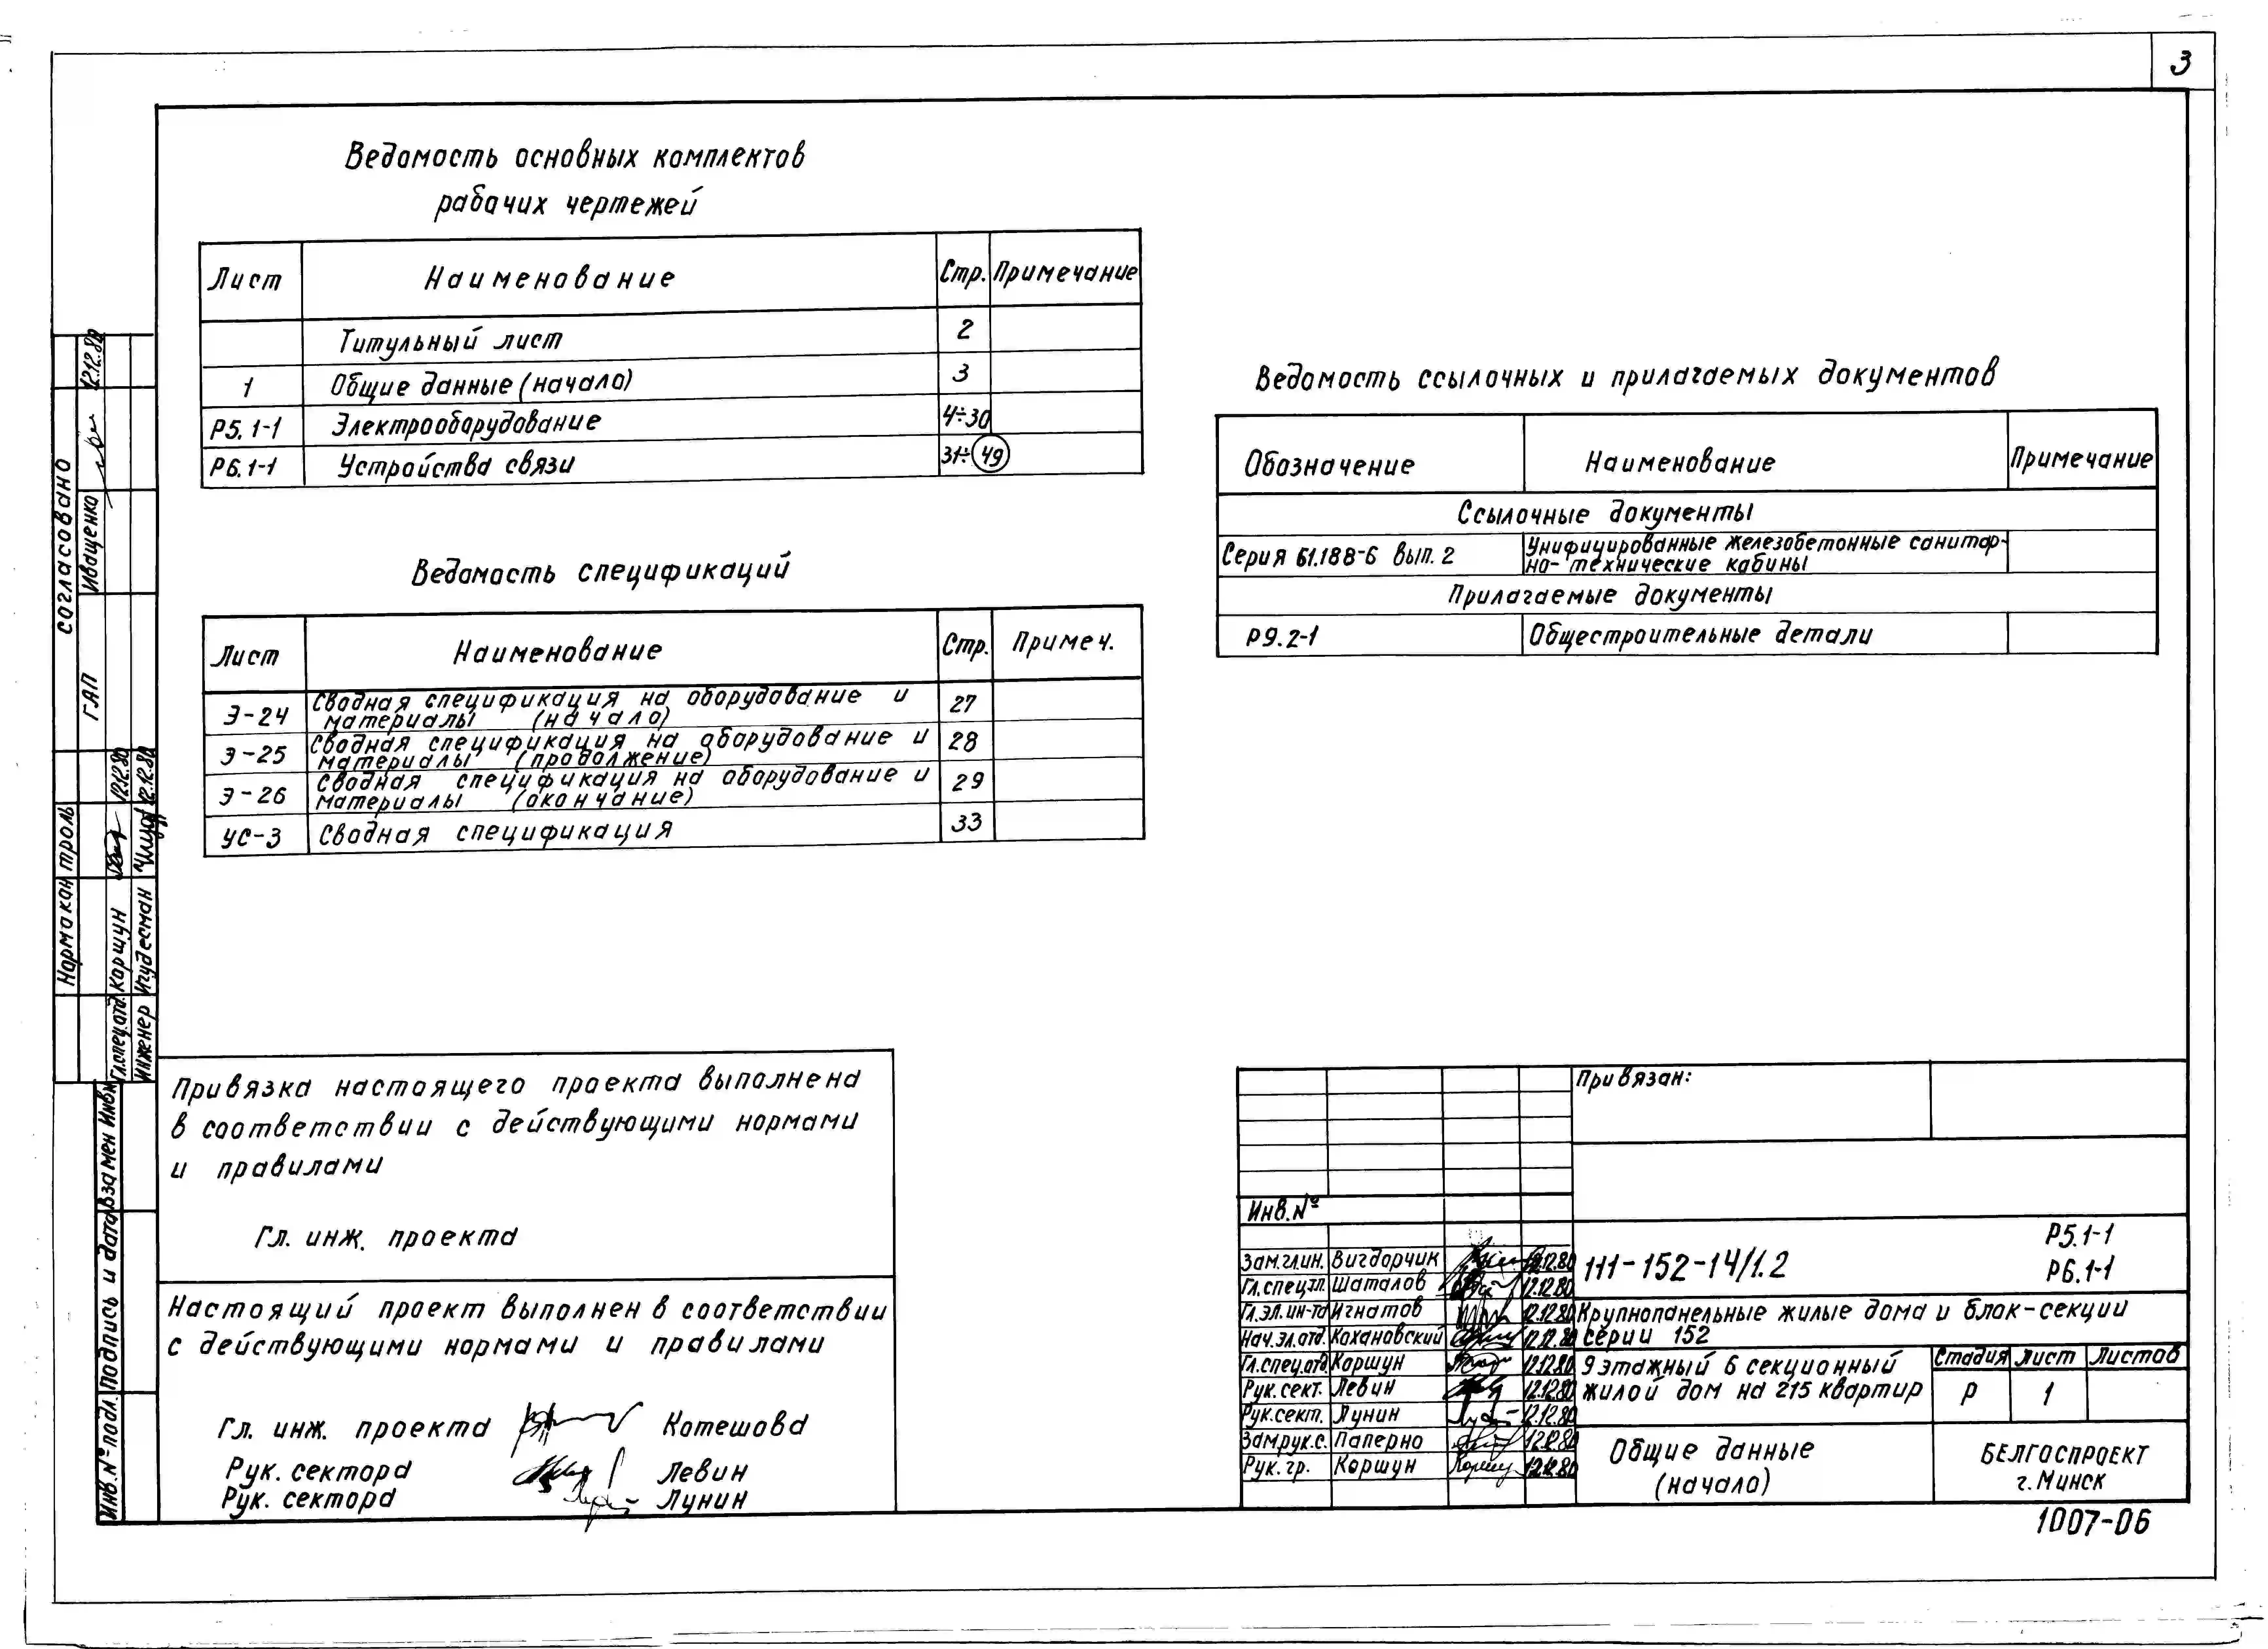 3
Ведомость основных комплектов
рабочих чертежей
Лист Наименование Стр. Примечание
Титульный лист 2
1 Общие данные (начало) 3
Р5.1-1 Электрооборудование 4÷30
Р6.1-1 Устройства связи 31÷49
Ведомость спецификаций
Лист Наименование Стр. Примеч.
Э-24 Сводная спецификация на оборудование и 27
материалы (начало)
Э-25 Сводная спецификация на оборудование и 28
материалы (продолжение)
Э-26 Сводная спецификация на оборудование и 29
материалы (окончание)
УС-3 Сводная спецификация 33
Ведомость ссылочных и прилагаемых документов
Обозначение Наименование Примечание
Ссылочные документы
Серия Б1.188-6 вып. 2 Унифицированные железобетонные санитар-
но-технические кабины
Прилагаемые документы
Р9.2-1 Общестроительные детали
согласовано
ГАП Иващенко 12.12.80
Нормаконтроль
Гл.спец.отд. Коршун 12.12.80
Инженер Игудесман 12.12.80
Взамен Инв.№
Подпись и дата
Инв.№ подл.
Привязка настоящего проекта выполнена
в соответствии с действующими нормами
и правилами
Гл. инж. проекта
Настоящий проект выполнен в соответствии
с действующими нормами и правилами
Гл. инж. проекта Котешова
Рук. сектора Левин
Рук. сектора Лунин
Привязан:
Инв.№
Зам.гл.ин. Вигдорчик 12.12.80
Гл.спец.тп. Шаталов 12.12.80
Гл.эл.ин-та Игнатов 12.12.80
Нач.эл.отд. Кохановский 12.12.80
Гл.спец.отд. Коршун 12.12.80
Рук.сект. Левин 12.12.80
Рук.сект. Лунин 12.12.80
Зам.рук.с. Паперно 12.12.80
Рук.гр. Коршун 12.12.80
111-152-14/1.2
Р5.1-1
Р6.1-1
Крупнопанельные жилые дома и блок-секции
серии 152
9 этажный 6 секционный
жилой дом на 215 квартир
Стадия Лист Листов
Р 1
Общие данные
(начало)
БЕЛГОСПРОЕКТ
г. Минск
1007-06